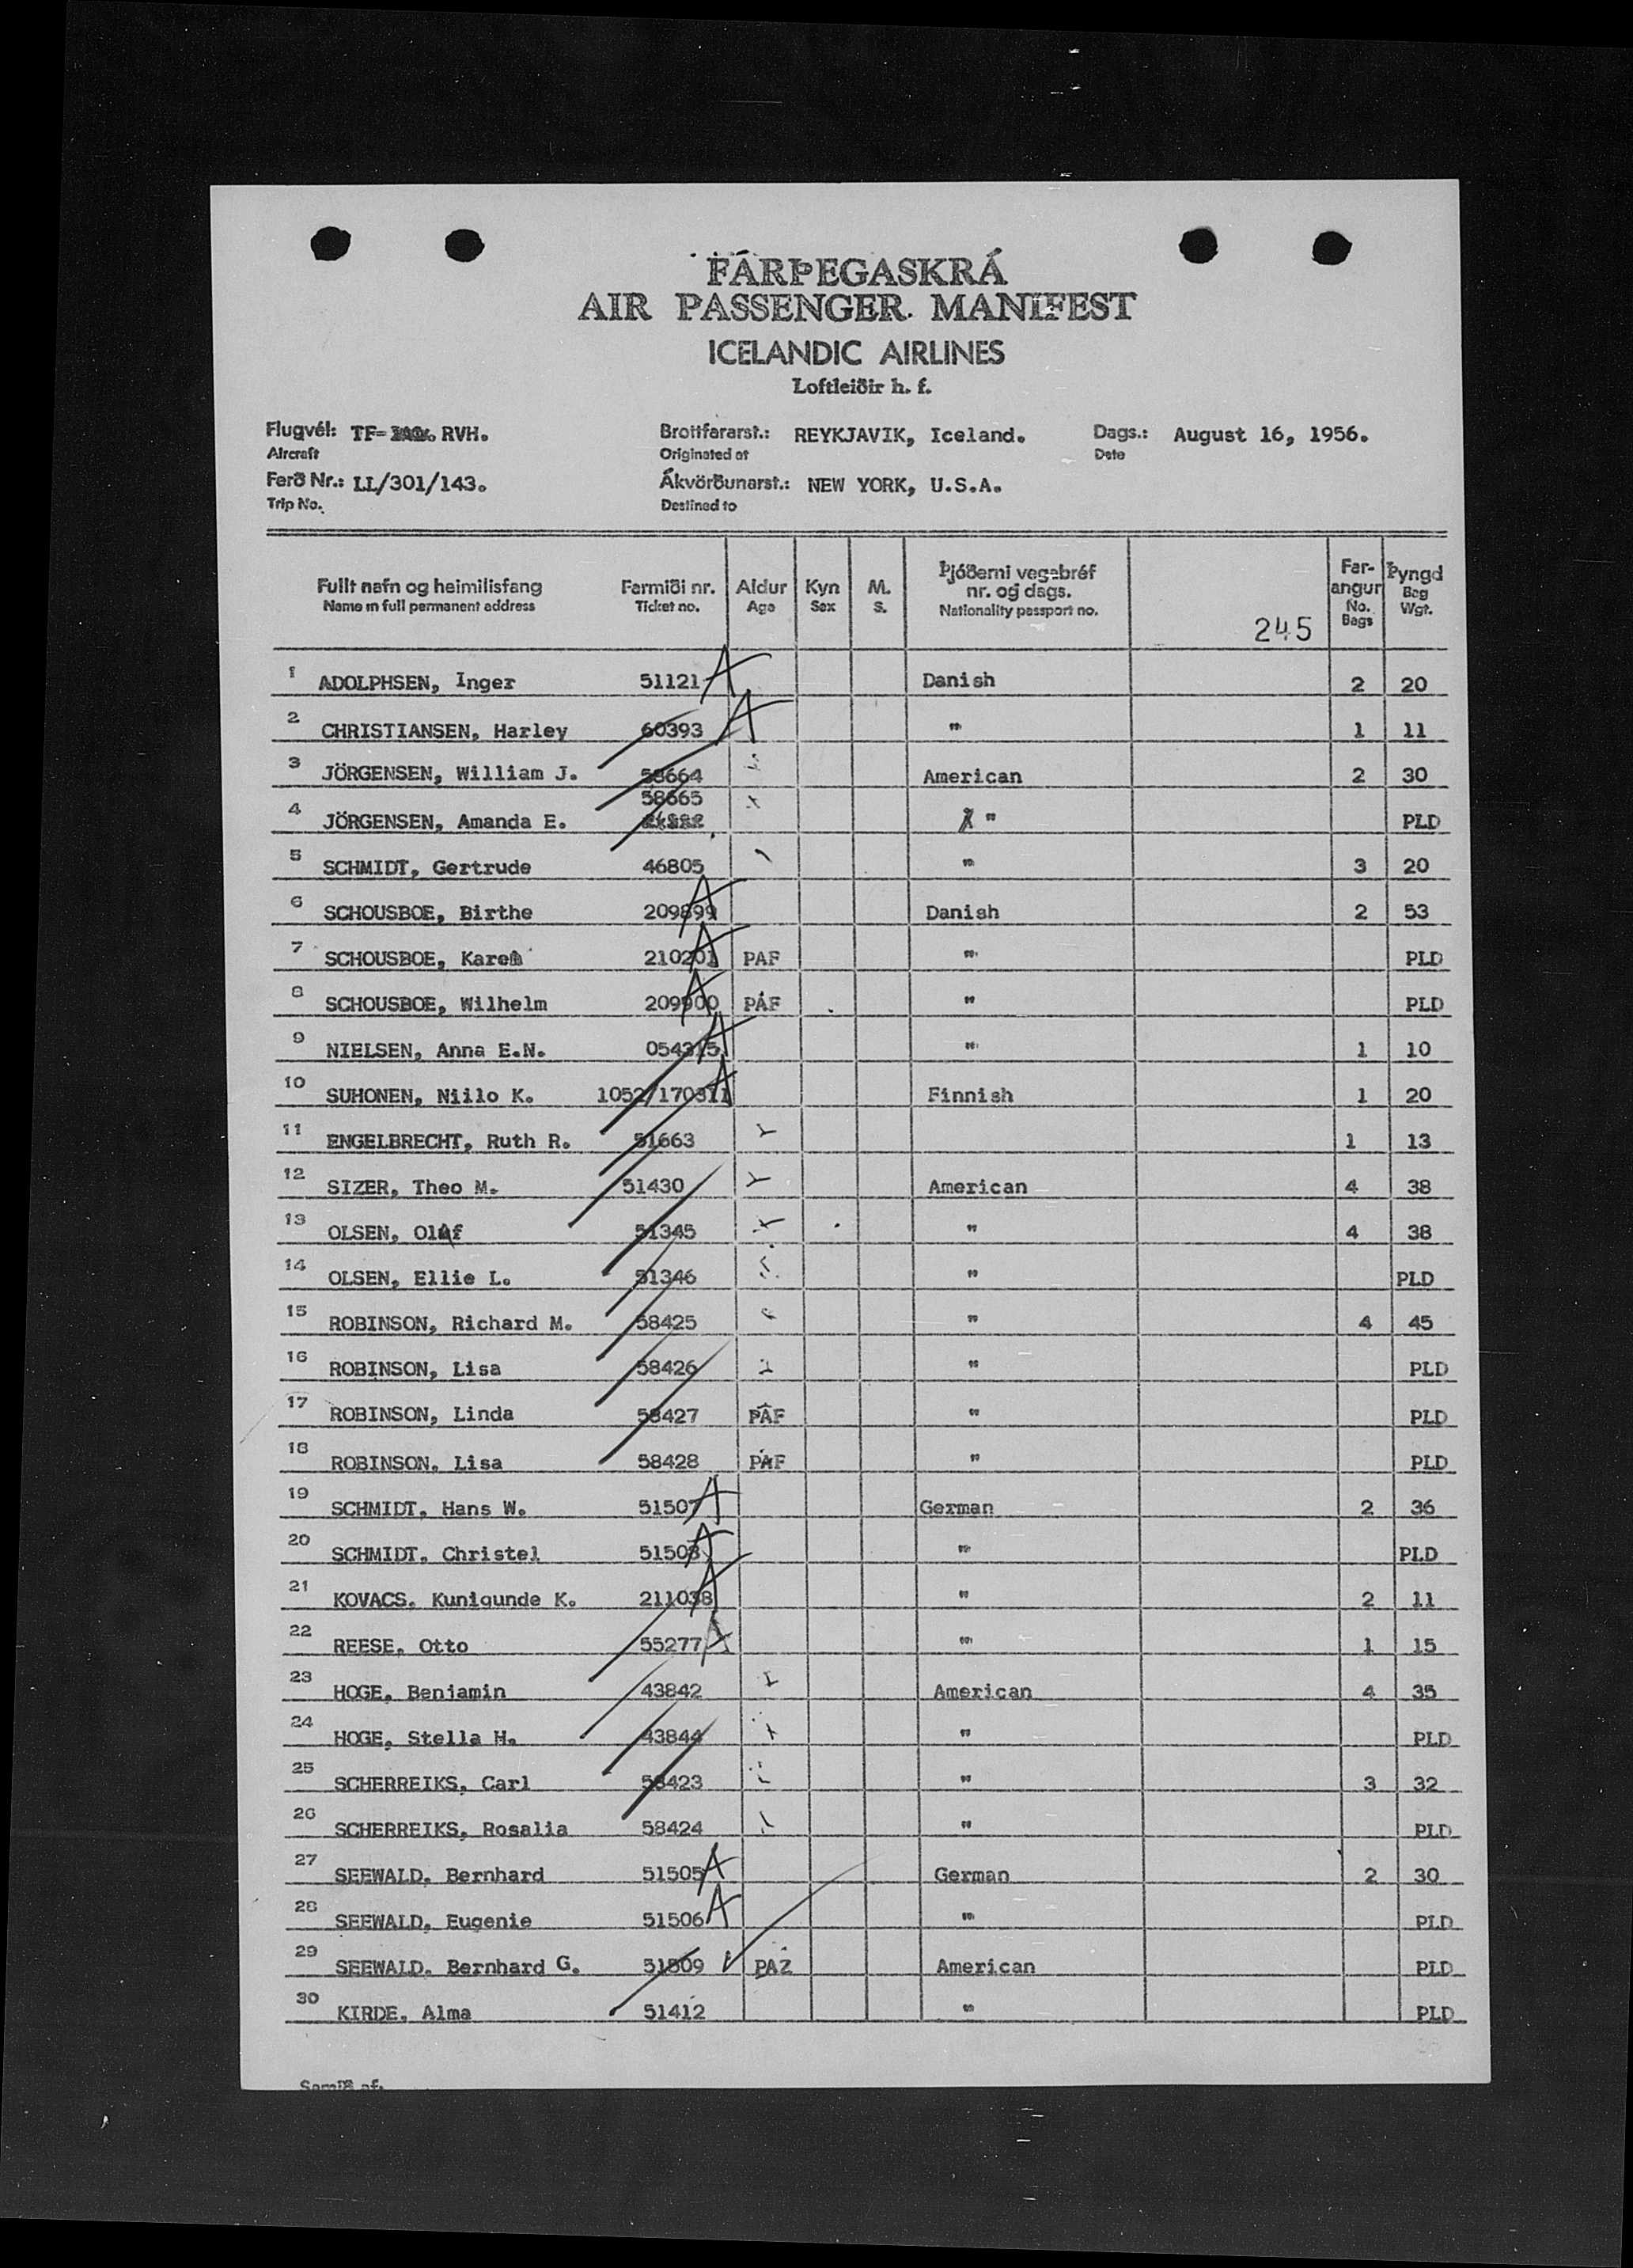 FARÞEGASKRÁ
AIR PASSENGER MANIFEST
ICELANDIC AIRLINES
Loftleiðir h. f.
Flugvél: TF- RVH. Brottfararst.: REYKJAVIK, Iceland. Dags.: August 16, 1956.
Aircraft Originated at Date
Ferð Nr.: LL/301/143. Ákvörðunarst.: NEW YORK, U.S.A.
Trip No. Destined to
Fullt nafn og heimilisfang Farmiði nr. Aldur Kyn M. Þjóðerni vegabréf nr. og dags. Farangur Þyngd
Name in full permanent address Ticket no. Age Sex S. Nationality passport no. 245 No. Bags Bag Wgt.
1 ADOLPHSEN, Inger 51121 A Danish 2 20
2 CHRISTIANSEN, Harley 60393 A " 1 11
3 JÖRGENSEN, William J. 58664 American 2 30
58665
4 JÖRGENSEN, Amanda E. " PLD
5 SCHMIDT, Gertrude 46805 " 3 20
6 SCHOUSBOE, Birthe 209899 A Danish 2 53
7 SCHOUSBOE, Karen 210201 A PAF " PLD
8 SCHOUSBOE, Wilhelm 209900 A PAF " PLD
9 NIELSEN, Anna E.N. 054315 A " 1 10
10 SUHONEN, Niilo K. 1052/170311 A Finnish 1 20
11 ENGELBRECHT, Ruth R. 51663 1 13
12 SIZER, Theo M. 51430 American 4 38
13 OLSEN, Olaf 51345 " 4 38
14 OLSEN, Ellie L. 51346 " PLD
15 ROBINSON, Richard M. 58425 " 4 45
16 ROBINSON, Lisa 58426 " PLD
17 ROBINSON, Linda 58427 PAF " PLD
18 ROBINSON, Lisa 58428 PAF " PLD
19 SCHMIDT, Hans W. 51507 A German 2 36
20 SCHMIDT, Christel 51508 A " PLD
21 KOVACS, Kunigunde K. 211038 A " 2 11
22 REESE, Otto 55277 A " 1 15
23 HOGE, Benjamin 43842 American 4 35
24 HOGE, Stella H. 43844 " PLD
25 SCHERREIKS, Carl 58423 " 3 32
26 SCHERREIKS, Rosalia 58424 " PLD
27 SEEWALD, Bernhard 51505 A German 2 30
28 SEEWALD, Eugenie 51506 A " PLD
29 SEEWALD, Bernhard G. 51509 PAZ American PLD
30 KIRDE, Alma 51412 " PLD